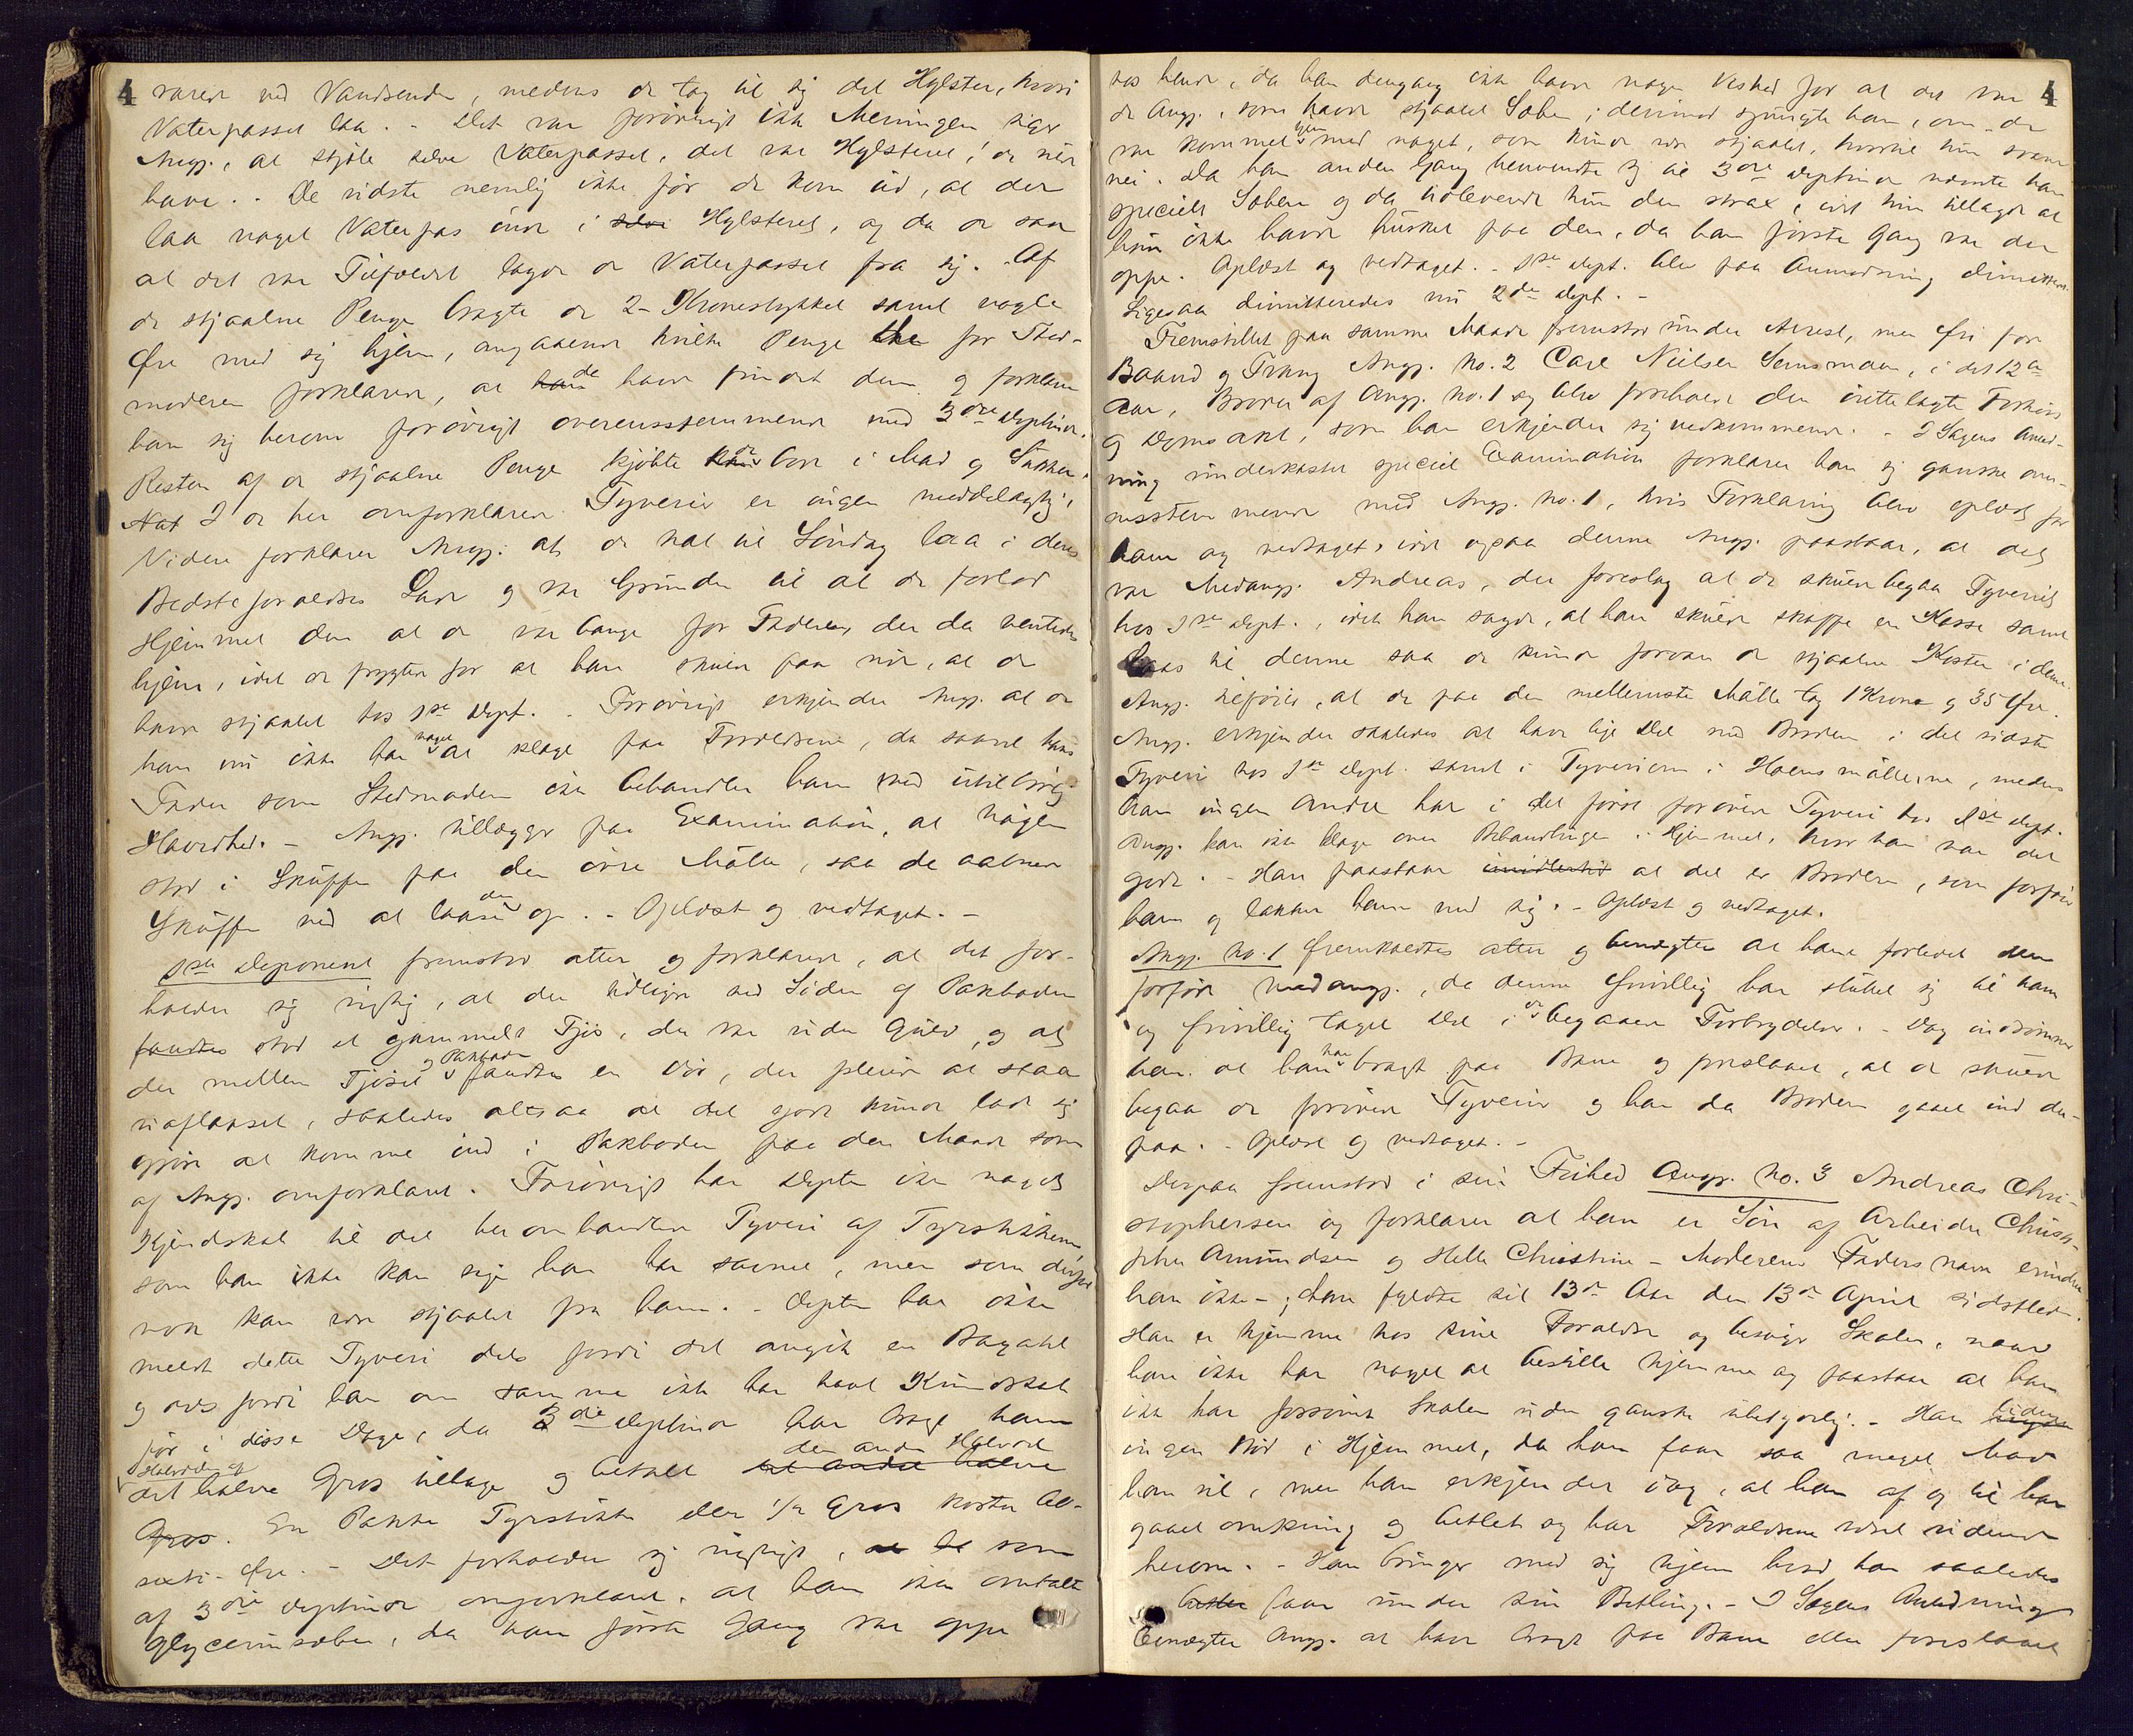 4
varede ved Vandrenden, medens de tog til sig det Hylster, hvori
Vaterpasset laa. - Det var forøvrigt ikke Meningen siger
Angj., at stjæle selve Vaterpasset, det var Hylsteret de vilde
have. De vidste nemlig ikke før de kom ud, at der
laa noget Vaterpas inde i selve Hylsteret, og da de saa
at det var Tilfældet lagde de Vaterpasset fra sig. Af
de stjaalne Penge bragte de 2-Kronestykket samt nogle
Øre med sig hjem, angaaende hvilke Penge de for Sted-
moderen forklarede, at de havde fundet dem og forklarer
han sig herom forøvrigt overensstemmende med 3die Deptinde.
Resten af de stjaalne Penge kjøbte de bort i Mad og Sukker.
I de her omforklarede Tyverier er ingen meddelagtig.
Videre forklarer Angj. at de Nat til Søndag laa i deres
Bedsteforældres Lade og var Grunden til at de forlod
Hjemmet den at de var bange for Faderen, der da ventedes
hjem, idet de frygtede for at han skulde faa vide, at de
havde stjaalet hos 1ste Dept. - Forøvrigt erkjender Angj. at
han nu ikke har noget at klage paa Forældrene, da saavel hans
Fader som Stedmoder ikke behandler ham med utilbørlig
Haardhed. - Angj. tillægger paa Examination, at Nøgelen
stod i Skuffen paa den øvre Mølle, saa de aabnede
Skuffen ved at laase den op. - Oplæst og vedtaget. -
1ste Deponent fremstod atter og forklarede, at det for-
holder sig rigtig, at der tidligere ved Siden af Pakboden
fandtes stod et gammelt Fjøs, der var uden Gulv, og at
der mellem Fjøset og Pakboden fandtes en Dør, der pleiede at staa
uaflaaset, saaledes altsaa at det godt kunde lade sig
gjøre at komme ind i Pakboden paa den Maade som
af Angj. omforklaret. Forøvrigt har Depten ikke noget
Kjendskab til det her omhandlede Tyveri af Fyrstikkerne,
som han ikke kan sige han har savnet, men som derfor
nok kan være stjaalet fra ham. - Depten har ikke
meldt dette Tyveri dels fordi det angik en Bagatel
og dels fordi han om samme ikke har havt Kundskab
før i disse Dage, da 3die Deptinde har bragt ham
Halvdelen af
det halve Gros tilbage og betalt den anden Halvdel det andet halve
Gros. En Pakke Fyrstikker eller 1/2 Gros koster
Øre. - Det forholder sig rigtigt, som
af 3die Deptinde omforklaret, at han ikke omtalte
Glycerinsæben, da han første Gang var oppe
4
hos hende, da han dengang ikke havde nogen Vished for at det var
de Angj., som havde stjaalet Sæben; derimod spurgte han, om de
var kommet hjem med noget, som kunde være stjaalet, hvortil hun svarede
nei. Da han anden Gang henvendte sig til 3die Deptinde nævnte han
specielt Sæben og da udleverede hun den strax, idet hun tillagde at
hun ikke havde husket paa den, da han første Gang var der
oppe. Oplæst og vedtaget. - 1ste Dept. blev paa Anmodning dimitteret.
Ligesaa dimitteredes nu 2den Dept. -
Fremstillet paa samme Maade fremstod under Arrest, men fri for
Baand og Tvang Angj. No. 2 Carl Nielsen Semsmoen, i det 12te
Aar, Broder af Angj. No. 1 og blev foreholdt den irettelagte Forhørs
og Domsakt, som han erkjender sig vedkommende. - I Sagens Anled-
ning underkastet speciel Examination forklarer han sig ganske over-
ensstemmende med Angj. No. 1, hvis Forklaring blev oplæst for
ham og vedtaget, idet ogsaa denne Angj. paastaar, at det
var Medangj. Andreas, der foreslog at de skulde begaa Tyveriet
hos 1ste Dept., idet han sagde, at han skulde skaffe en Kasse samt
Laas til denne saa de kunde forvare de stjaalne Koster i denne.
Angj. tilføier, at de paa den mellemste Mølle tog 1 Krone og 35 Øre.
Angj. erkjender saaledes at have lige Del med Broderen i det sidste
Tyveri hos 1ste Dept. samt i Tyverierne i Hoensmøllerne, medens
han ingen Andel har i det først forøvede Tyveri hos 1ste Dept.
Angj. kan ikke klage over Behandlingen i Hjemmet, hvor han har det
godt. - Han paastaar imidlertid at det er Broderen, som forfører
ham og lokker ham med sig. - Oplæst og vedtaget.
Angj. No. 1 fremkaldtes atter og benægter at have forledet eller
forført Medangj., da denne frivillig har sluttet sig til ham
og frivillig taget Del i de begaaede Forbrydelser. - Dog indrømmer
han at han har bragt paa Bane og foreslaaet, at de skulde
begaa de forøvede Tyverier og har da Broderen gaaet ind der-
paa. - Oplæst og vedtaget. -
Derpaa fremstod i sin Frihed Angj. No. 3 Andreas Chri-
stophersen og forklarer at han er Søn af Arbeider Christo-
pher Amundsen og Helle Christine - Moderens Faders navn erindrer
han ikke -; han fyldte sit 13de Aar den 13de April sidstleden.
Han er hjemme hos sine Forældre og besøger Skolen, naar
han ikke har noget at bestille hjemme og paastaar at han
ikke har forsømt Skolen uden ganske ubetydelig. - Han lider
ingen Nød i Hjemmet, da han faar saa meget Mad
han vil, men han erkjender dog, at han af og til har
gaaet omkring og betlet og har Forældrene været vidende
herom. - Han bringer med sig hjem hvad han saaledes
faar under sin Betling. - I Sagens Anledning
benægter Angj. at have bragt paa Bane eller foreslaaet